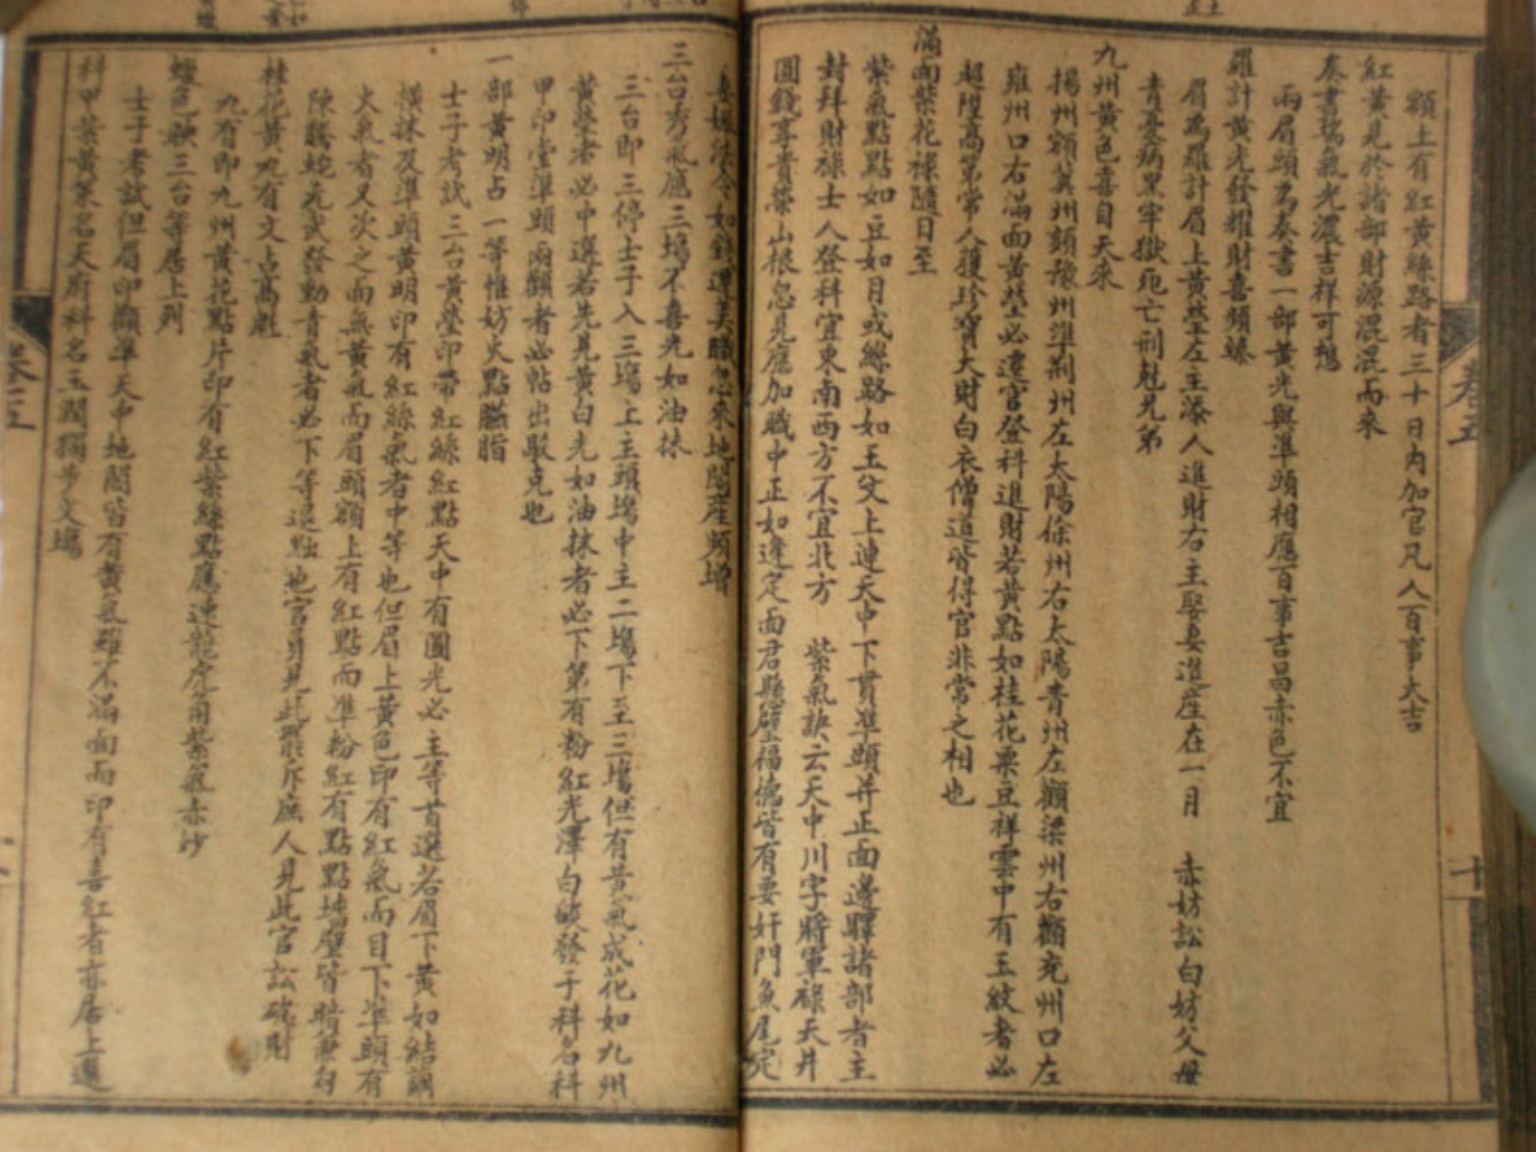 額上有紅黃絲路者三十日內加官凡人百事大吉
紅黃見於諸部財源混混而來
兩眉頭名奏書一部黃光與準頭相應百事吉昌赤色不宜
奏書瑞氣光濃吉祥可想
羅計黃光發耀財喜頻臻
眉為羅計眉上黃瑩左主添人進財右主娶妻進產在一月 赤妨訟白妨父母
青憂病黑牢獄死亡刑剋兄弟
九州黃色喜自天來
揚州額冀州頦豫州準荊州左太陽徐州右太陽青州左顴梁州右顴兗州口左
雍州口右滿面黃瑩必遷官登科進財若黃點如桂花粟豆祥雲中有玉紋者必
超陞高第常人獲珍寶大財白衣僧道皆得官非常之相也
滿面紫花祿隨日至
紫氣點點如豆如月或絲路如玉文上連天中下貫準頭并正面邊驛諸部者主
封拜財祿士人登科宜東南西方不宜北方 紫氣訣云天中川字將軍祿天井
圓錢享貴榮山根忽見應加職中正如逢定面君懸壁福德皆有要奸門魚尾完
妻姻法令如錢遭美職忽來地閣產頻增
三台秀氣應三場不喜光如油抹
三台即三停士子入三場上主頭場中主二場下主三場但有黃氣成花如九州
黃瑩者必中選若先見黃白光如油抹者必下第有粉紅光澤白啟發于科名科
甲印堂準頭兩顴者必帖出駁克也
一部黃明占一等惟妨火點臙脂
士子考試三台黃瑩印帶紅絲紅點天中有圓光必主等首選若眉下黃如結誦
橫抹及準頭黃明印有紅絲氣者中等也但眉上黃色印有紅氣而目下準頭有
火氣者又次之面無黃氣而眉頭額上有紅點而準粉紅有點點墻壁皆暗兼句
陳騰蛇元武發動青氣者必下等退黜也官員見此罷斥庶人見此官訟破財
桂花黃九有文占高魁
九有即九州黃花點片印有紅紫絲點應連龍虎角紫氣赤妙
蠟色映三台等居上列
士子考試但眉印顴準天中地閣皆有黃氣雖不滿面而印有喜紅者亦居上選
科甲紫黃策名天府科名玉潤獨步文場
卷五
十
卷五